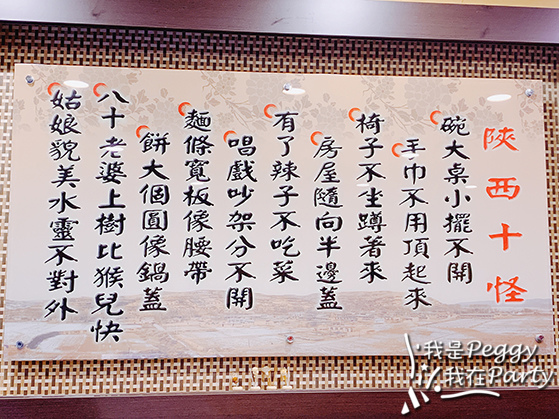 陝西十怪
碗大桌小擺不開
手巾不用頂起來
椅子不坐蹲著來
房屋隨向半邊蓋
有了辣子不吃菜
唱戲吵架分不開
麵條寬板像腰帶
餅大個圓像鍋蓋
八十老婆上樹比猴兒快
姑娘貌美水靈不對外
我是Peggy
我在Party